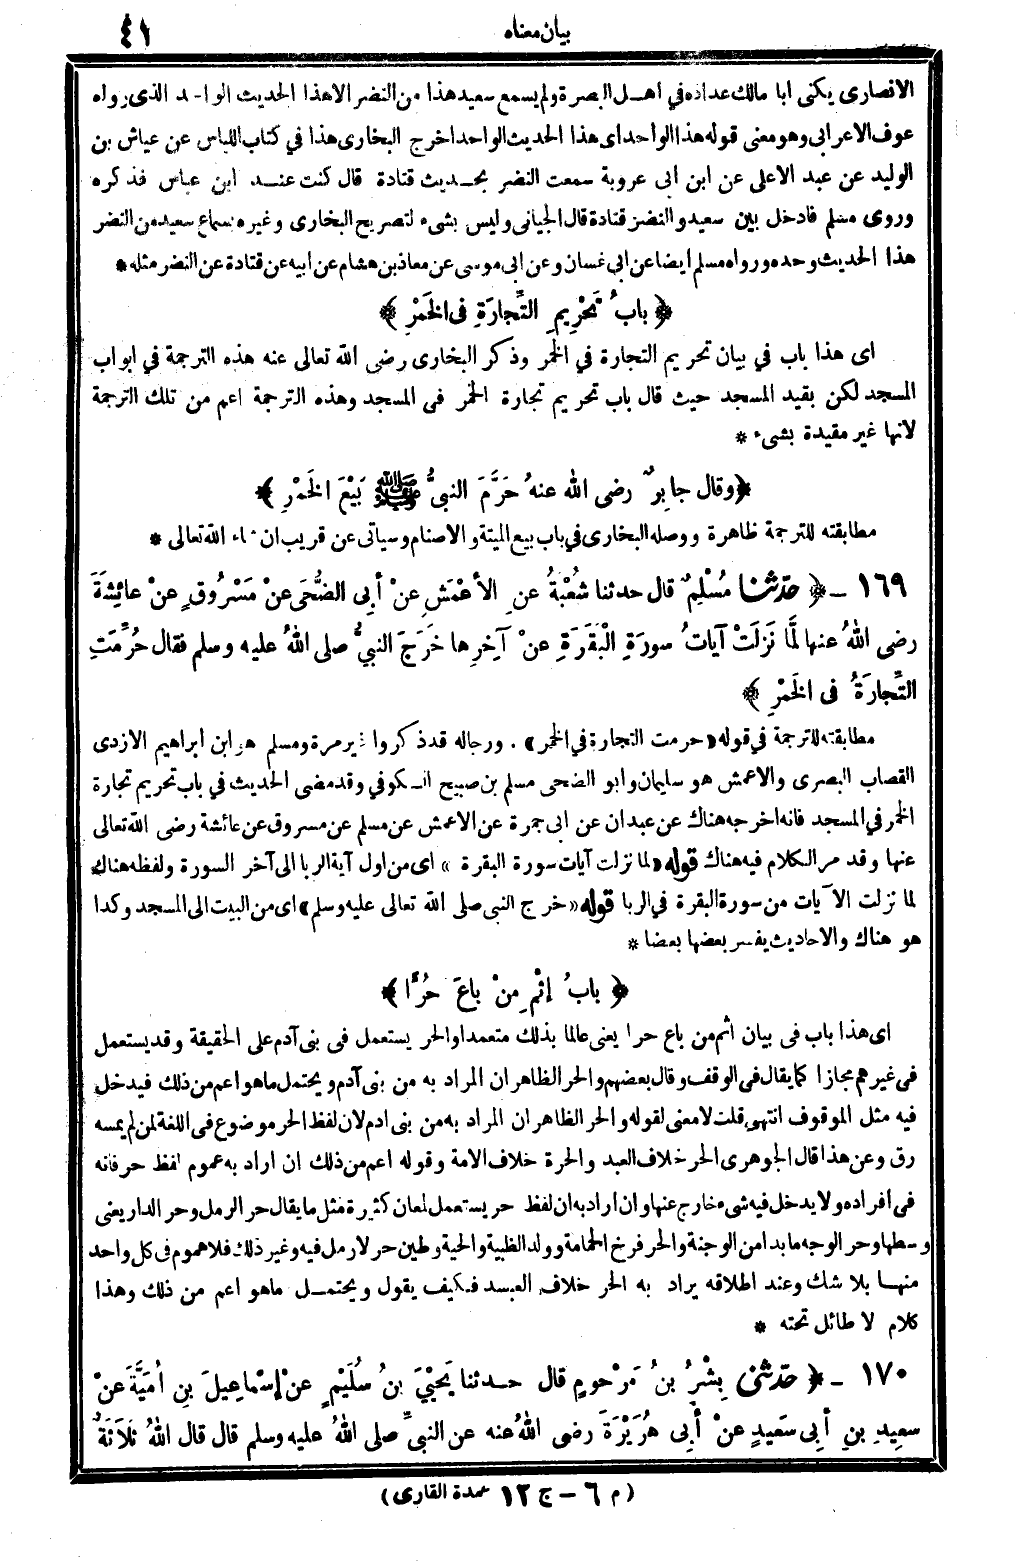 بيان معناه ٤١
الانصارى يكنى ابا مالك عداده في اهل البصرة ولم يسمع سعيد هذا من النضر الا هذا الحديث الواحد الذى رواه
عوف الاعرابى وهو معنى قوله هذا الواحد اى هذا الحديث الواحد اخرج البخارى هذا في كتاب اللباس عن عياش بن
الوليد عن عبد الاعلى عن ابن ابى عروبة سمعت النضر بحديث قتادة قال كنت عند ابن عباس فذكره
وروى مسلم فادخل بين سعيد والنضر قتادة قال الجيانى وليس بشىء لتصريح البخارى وغيره بسماع سعيد من النضر
هذا الحديث وحده ورواه مسلم ايضا عن ابى غسان وعن ابى موسى عن معاذ بن هشام عن ابيه عن قتادة عن النضر مثله *
﴿ بابُ تَحْرِيمِ التِّجارَةِ فى الخَمْرِ ﴾
اى هذا باب في بيان تحريم التجارة في الخمر وذكر البخارى رضى الله تعالى عنه هذه الترجمة في ابواب
المسجد لكن بقيد المسجد حيث قال باب تحريم تجارة الخمر فى المسجد وهذه الترجمة اعم من تلك الترجمة
لانها غير مقيدة بشىء *
﴿ وقال جابِرٌ رضى الله عنهُ حَرَّمَ النبىُّ ﷺ بَيْعَ الخَمْرِ ﴾
مطابقته للترجمة ظاهرة ووصله البخارى في باب بيع الميتة والاصنام وسياتى عن قريب ان شاء الله تعالى *
١٦٩ - ﴿ حدّثنا مُسْلِمٌ قال حدثنا شُعْبَةُ عنِ الأعْمَشِ عنْ أبِى الضُّحَى عنْ مَسْرُوقٍ عنْ عائِشَةَ
رضى اللهُ عنها لَمَّا نَزلَتْ آياتُ سورَةِ الْبَقَرَةِ عنْ آخِرِها خَرَجَ النبىُّ صلى اللهُ عليه وسلم فقال حُرِّمَتِ
التِّجارَةُ فى الخَمْرِ ﴾
مطابقته للترجمة في قوله «حرمت التجارة في الخمر» . ورجاله قد ذكروا غير مرة ومسلم هو ابن ابراهيم الازدى
القصاب البصرى والاعمش هو سليمان وابو الضحى مسلم بن صبيح الكوفي وقد مضى الحديث في باب تحريم تجارة
الخمر في المسجد فانه اخرجه هناك عن عبدان عن ابى حمزة عن الاعمش عن مسلم عن مسروق عن عائشة رضى الله تعالى
عنها وقد مر الكلام فيه هناك قوله «لما نزلت آيات سورة البقرة » اى من اول آية الربا الى آخر السورة ولفظه هناك
لما نزلت الآيات من سورة البقرة في الربا قوله «خرج النبى صلى الله تعالى عليه وسلم» اى من البيت الى المسجد وكذا
هو هناك والاحاديث يفسر بعضها بعضا *
﴿ بابُ إثْمِ مِنْ باعَ حُرًّا ﴾
اى هذا باب فى بيان اثم من باع حرا يعنى عالما بذلك متعمدا والحر يستعمل فى بنى آدم على الحقيقة وقد يستعمل
فى غيرهم مجازا كما يقال فى الوقف وقال بعضهم والحر الظاهر ان المراد به من بنى آدم ويحتمل ما هو اعم من ذلك فيدخل
فيه مثل الموقوف انتهى قلت لا معنى لقوله والحر الظاهر ان المراد به من بنى ادم لان لفظ الحر موضوع فى اللغة لمن لم يمسه
رق وعن هذا قال الجوهرى الحر خلاف العبد والحرة خلاف الامة وقوله اعم من ذلك ان اراد به عموم لفظ حر فانه
فى افراده ولا يدخل فيه شىء خارج عنها وان اراد به ان لفظ حر يستعمل لمعان كثيرة مثل ما يقال حر الرمل وحر الدار يعنى
وسطها وحر الوجه ما بدا من الوجنة والحر فرخ الحمامة وولد الظبية والحية وطين حر لا رمل فيه وغير ذلك فلا عموم فى كل واحد
منها بلا شك وعند اطلاقه يراد به الحر خلاف العبد فكيف يقول ويحتمل ما هو اعم من ذلك وهذا
كلام لا طائل تحته *
١٧٠ - ﴿ حدّثنى بِشْرُ بنُ مَرْحومٍ قال حدثنا يَحْيَى بنُ سُلَيْمٍ عنْ إسْماعِيلَ بنِ أُمَيَّةَ عنْ
سعِيدِ بنِ أبِى سَعَيدٍ عنْ أبِى هُرَيْرَةَ رضى اللهُ عنه عن النبىِّ صلى اللهُ عليه وسلم قال قال اللهُ ثَلاثَةٌ
(م ٦ – ج ١٢ عمدة القارى)